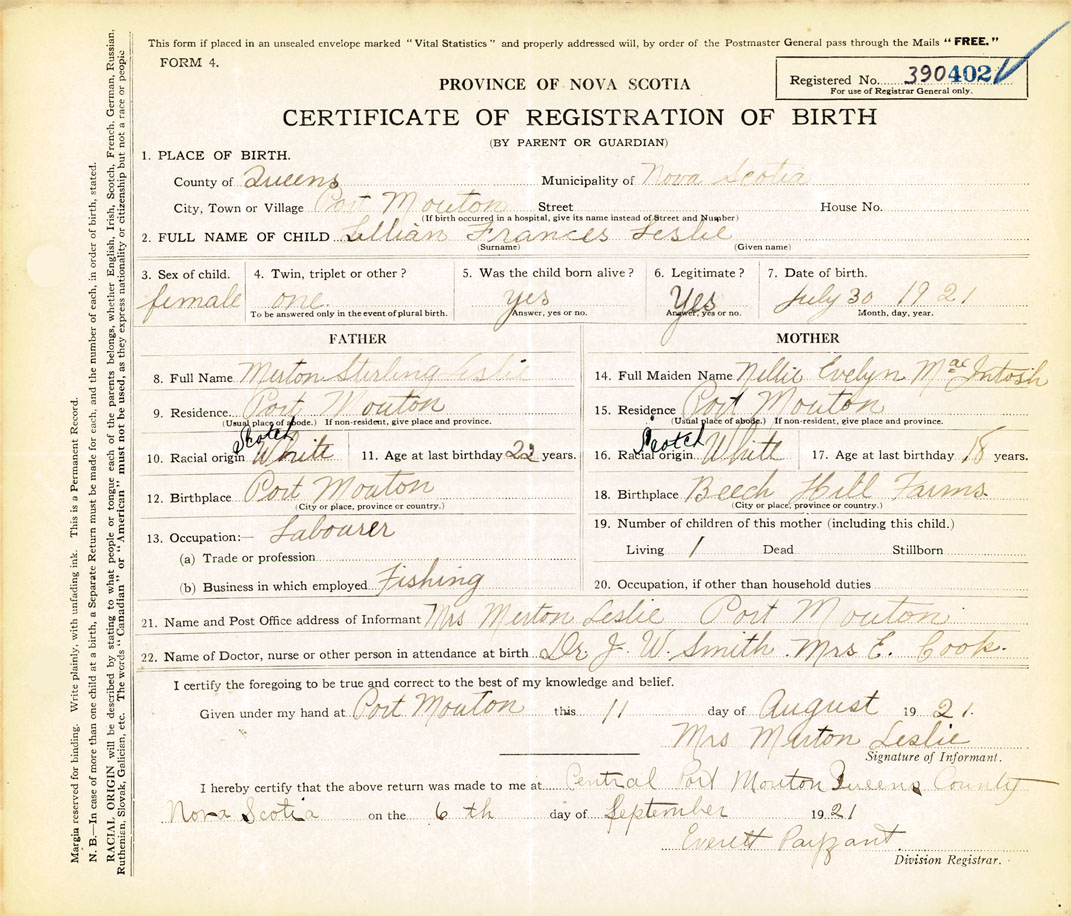 This form if placed in an unsealed envelope marked "Vital Statistics" and properly addressed will, by order of the Postmaster General pass through the Mails "FREE."
FORM 4.
Registered No. 390402
For use of Registrar General only.
PROVINCE OF NOVA SCOTIA
CERTIFICATE OF REGISTRATION OF BIRTH
(BY PARENT OR GUARDIAN)
1. PLACE OF BIRTH.
County of Queens Municipality of Nova Scotia
City, Town or Village Port Mouton Street House No.
(If birth occurred in a hospital, give its name instead of Street and Number)
2. FULL NAME OF CHILD Lillian Frances Leslie
(Surname) (Given name)
3. Sex of child. 4. Twin, triplet or other? 5. Was the child born alive? 6. Legitimate? 7. Date of birth.
female one. yes Yes July 30 1921
To be answered only in the event of plural birth. Answer, yes or no. Answer, yes or no. Month, day, year.
FATHER
8. Full Name Merton Sterling Leslie
9. Residence Port Mouton
(Usual place of abode.) If non-resident, give place and province.
Scotch
10. Racial origin White 11. Age at last birthday 22 years.
12. Birthplace Port Mouton
(City or place, province or country.)
13. Occupation:— Labourer
(a) Trade or profession
(b) Business in which employed Fishing
MOTHER
14. Full Maiden Name Nellie Evelyn MacIntosh
15. Residence Port Mouton
(Usual place of abode.) If non-resident, give place and province.
Scotch
16. Racial origin White 17. Age at last birthday 18 years.
18. Birthplace Beech Hill Farms.
(City or place, province or country.)
19. Number of children of this mother (including this child.)
Living 1 Dead Stillborn
20. Occupation, if other than household duties
21. Name and Post Office address of Informant Mrs Merton Leslie Port Mouton
22. Name of Doctor, nurse or other person in attendance at birth Dr J. W. Smith. Mrs E. Cook.
I certify the foregoing to be true and correct to the best of my knowledge and belief.
Given under my hand at Port Mouton this 11 day of August 1921.
Mrs Merton Leslie
Signature of Informant.
I hereby certify that the above return was made to me at Central Port Mouton Queens County
Nova Scotia on the 6th day of September 1921
Everett Payzant.
Division Registrar.
Margin reserved for binding. Write plainly, with unfading ink. This is a Permanent Record.
N. B.—In case of more than one child at a birth, a Separate Return must be made for each, and the number of each, in order of birth, stated.
RACIAL ORIGIN will be described by stating to what people or tongue each of the parents belongs, whether English, Irish, Scotch, French, German, Russian,
Ruthenian, Slovak, Galician, etc. The words "Canadian" or "American" must not be used, as they express nationality or citizenship but not a race or people